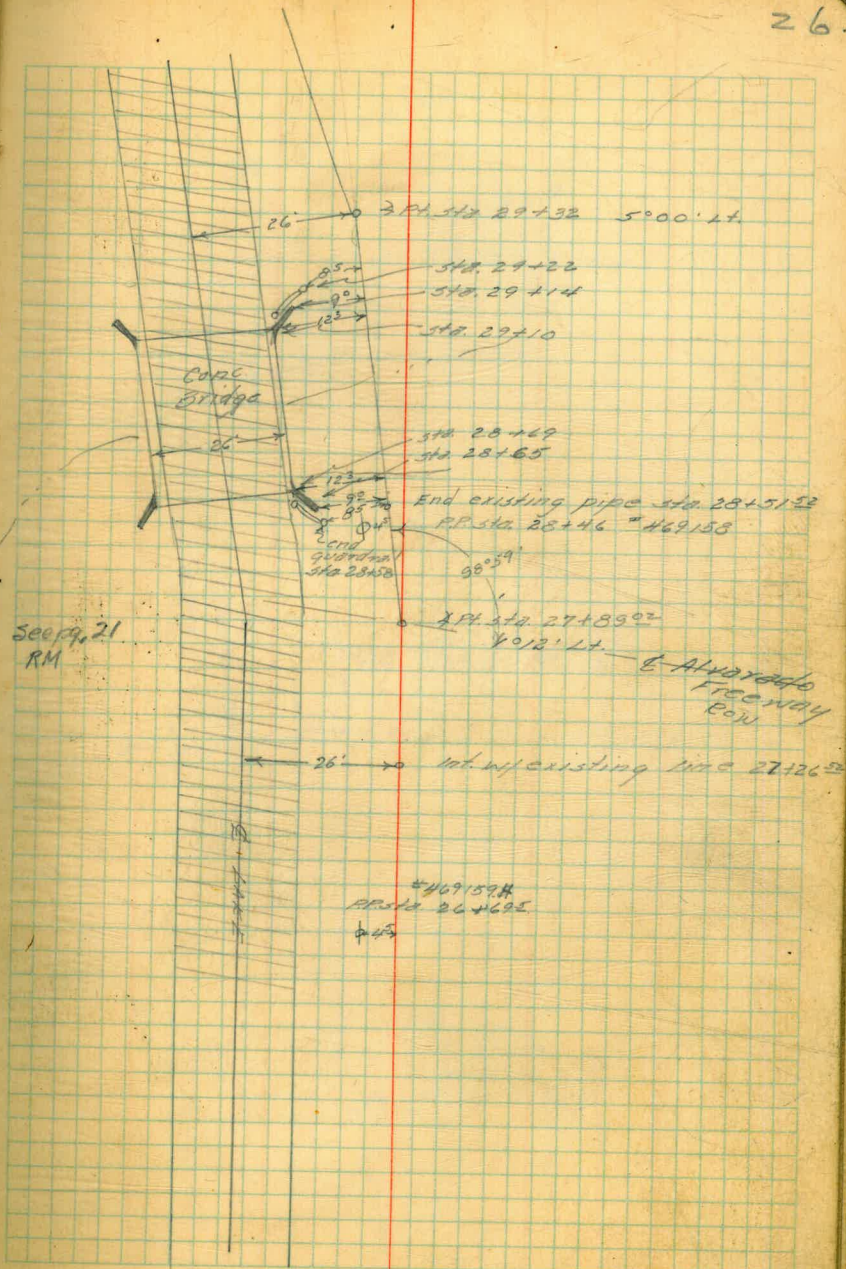 26
26' ∠ Pt. sta 29+32 5°00' Lt.
8⁵ sta. 29+22
9⁰ sta. 29+14
12³
sta. 29+10
Conc
Bridge
26' sta 28+69
sta. 28+65
12³
9² End existing pipe sta. 28+51⁵²
8⁵ 4⁵ P.P. sta. 28+46 #469158
end
guardrail
sta 28+58
98°59'
∠ Pt. sta. 27+89⁰²
Lt.
See pg. 21
RM
℄ Alvarado
Freeway
Row
26' Int. w/ existing line 27+26⁵²
℄
#469159H
P.P. sta 26+69⁵
4⁵